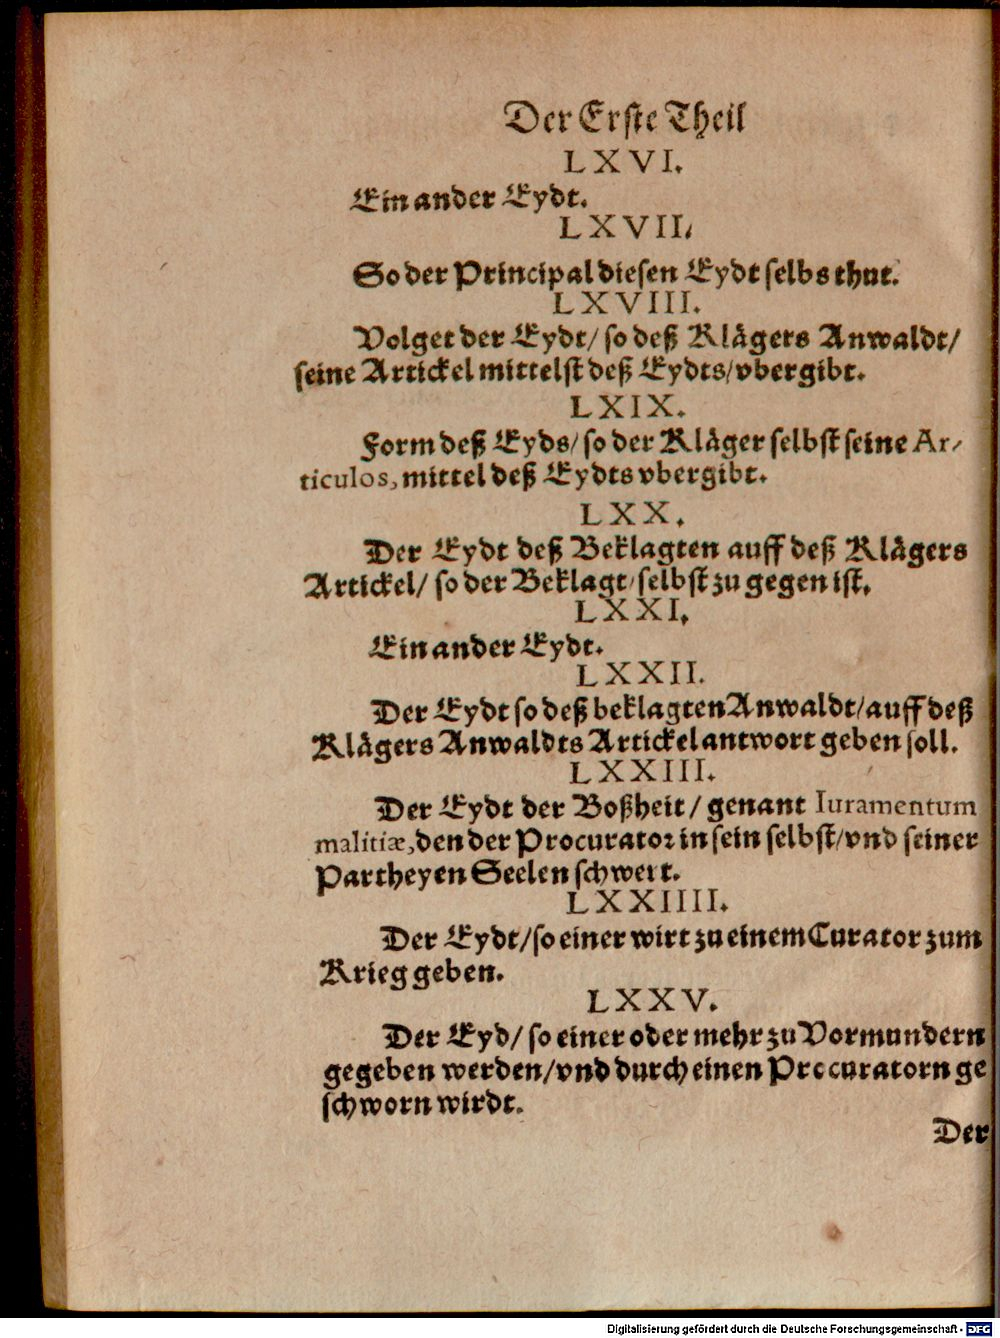 Der Erste Theil
LXVI.
Ein ander Eydt.
LXVII.
So der Principal diesen Eydt selbs thut.
LXVIII.
Volget der Eydt/ so deß Klågers Anwaldt/
seine Artickel mittelst deß Eydts/ vbergibt.
LXIX.
Form deß Eyds/ so der Klåger selbst seine Ar-
ticulos, mittel deß Eydts vbergibt.
LXX.
Der Eydt deß Beklagten auff deß Klågers
Artickel/ so der Beklagt/ selbst zu gegen ist.
LXXI.
Ein ander Eydt.
LXXII.
Der Eydt so deß beklagten Anwaldt/ auff deß
Klågers Anwaldts Artickel antwort geben soll.
LXXIII.
Der Eydt der Boßheit/ genant Iuramentum
malitiæ, den der Procurator in sein selbst/ vnd seiner
Partheyen Seelen schwert.
LXXIIII.
Der Eydt/ so einer wirt zu einem Curator zum
Krieg geben.
LXXV.
Der Eyd/ so einer oder mehr zu Vormundern
gegeben werden/ vnd durch einen Procuratorn ge
schworn wirdt.
Der
Digitalisierung gefördert durch die Deutsche Forschungsgemeinschaft - DFG